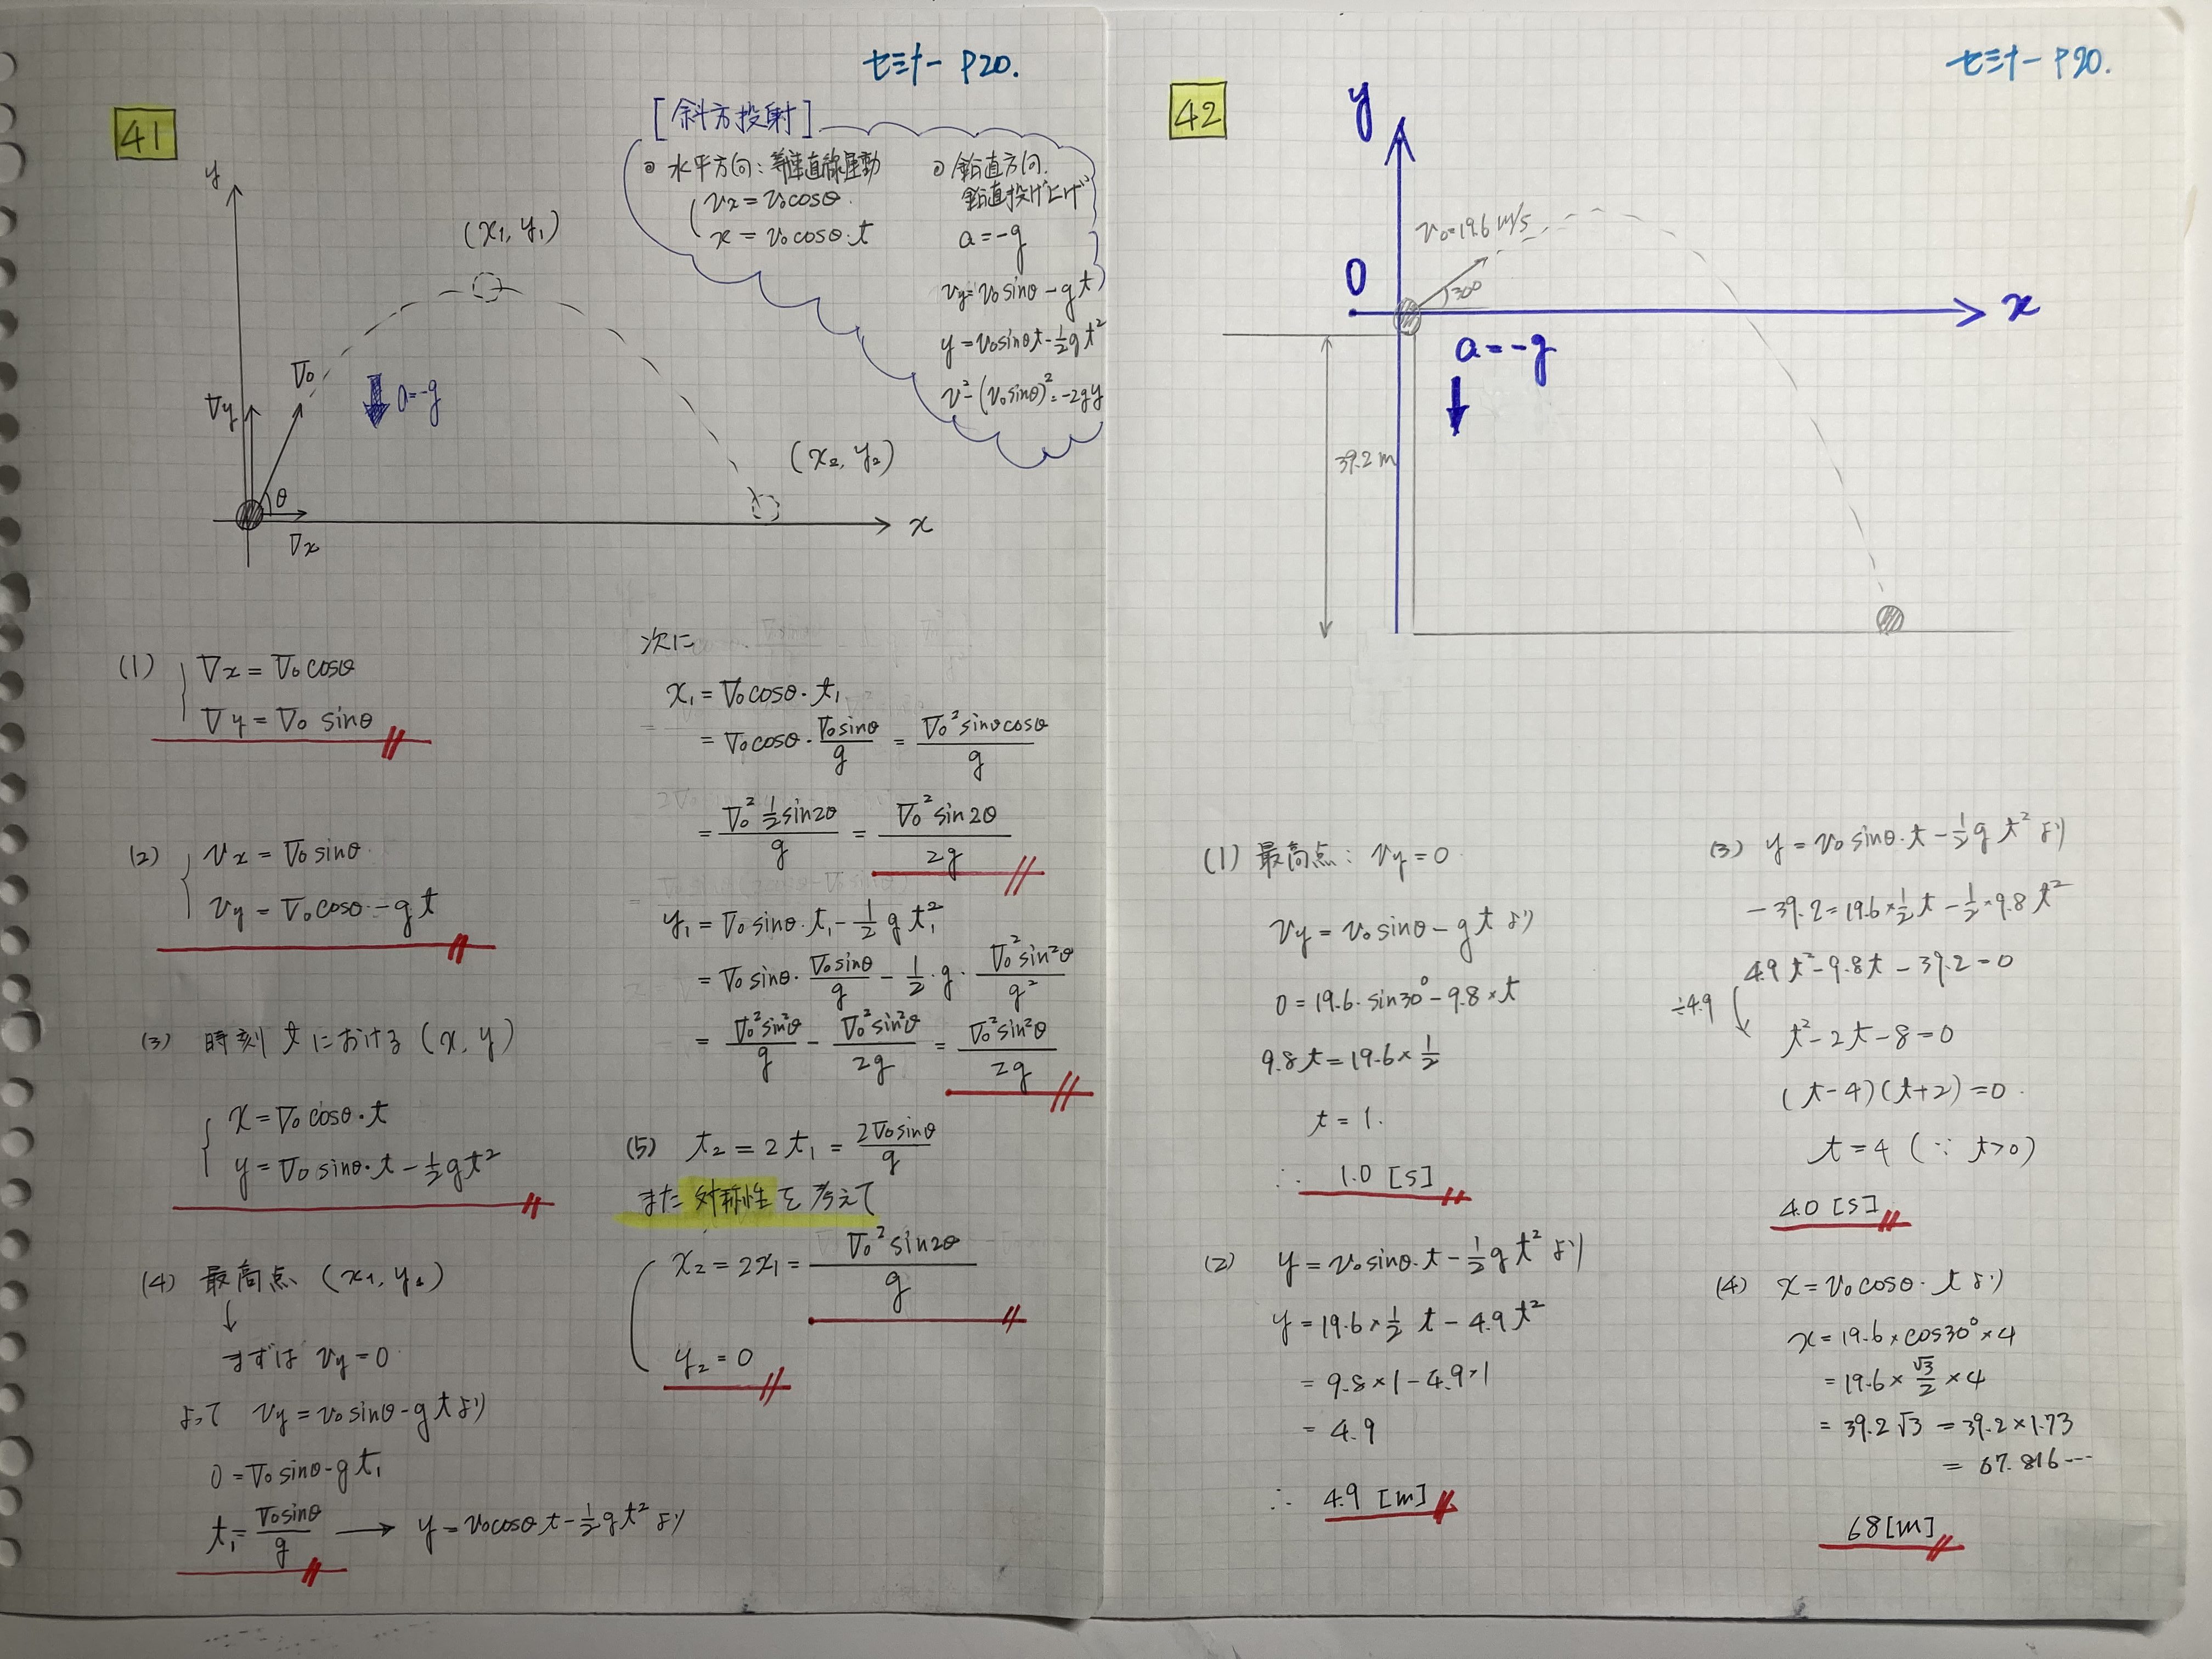 セミナー P20.
41
[斜方投射]
◎ 水平方向：等速直線運動
vx = v0cosθ.
x = v0cosθ・t
◎ 鉛直方向.
鉛直投げ上げ
a = -g
vy = v0 sinθ - gt
y = v0sinθt - 1/2 g t²
v² - (v0 sinθ)² = -2gy
y
(x1, y1)
V0
Vy
a = -g
(x2, y2)
θ
Vx
x
(1) Vx = V0 cosθ
Vy = V0 sinθ
(2) vx = V0 sinθ
vy = V0 cosθ - gt
(3) 時刻 t における (x, y)
x = V0 cosθ・t
y = V0 sinθ・t - 1/2 g t²
(4) 最高点 (x1, y1)
↓
まずは vy = 0
よって vy = v0 sinθ - gt より
0 = V0 sinθ - g t1
t1 = V0 sinθ / g → y = v0cosθ t - 1/2 g t² より
次に
x1 = V0 cosθ・t1
= V0 cosθ・V0 sinθ / g = V0² sinθcosθ / g
= V0² 1/2 sin2θ / g = V0² sin2θ / 2g
y1 = V0 sinθ・t1 - 1/2 g t1²
= V0 sinθ・V0 sinθ / g - 1/2・g・V0² sin²θ / g²
= V0² sin²θ / g - V0² sin²θ / 2g = V0² sin²θ / 2g
(5) t2 = 2 t1 = 2V0 sinθ / g
また 対称性を考えて
x2 = 2x1 = V0² sin2θ / g
y2 = 0
セミナー P20.
42
y
v0 = 19.6 m/s
30°
0
x
a = -g
39.2 m
(1) 最高点： vy = 0
vy = v0 sinθ - gt より
0 = 19.6・sin30° - 9.8 × t
9.8 t = 19.6 × 1/2
t = 1.
∴ 1.0 [s]
(2) y = v0 sinθ・t - 1/2 g t² より
y = 19.6 × 1/2 t - 4.9 t²
= 9.8 × 1 - 4.9 × 1
= 4.9
∴ 4.9 [m]
(3) y = v0 sinθ・t - 1/2 g t² より
-39.2 = 19.6 × 1/2 t - 1/2 × 9.8 t²
4.9 t² - 9.8 t - 39.2 = 0
÷4.9
t² - 2t - 8 = 0
(t - 4)(t + 2) = 0.
t = 4 (∵ t > 0)
4.0 [s]
(4) x = v0 cosθ・t より
x = 19.6 × cos30° × 4
= 19.6 × √3/2 × 4
= 39.2√3 = 39.2 × 1.73
= 67.816…
68 [m]